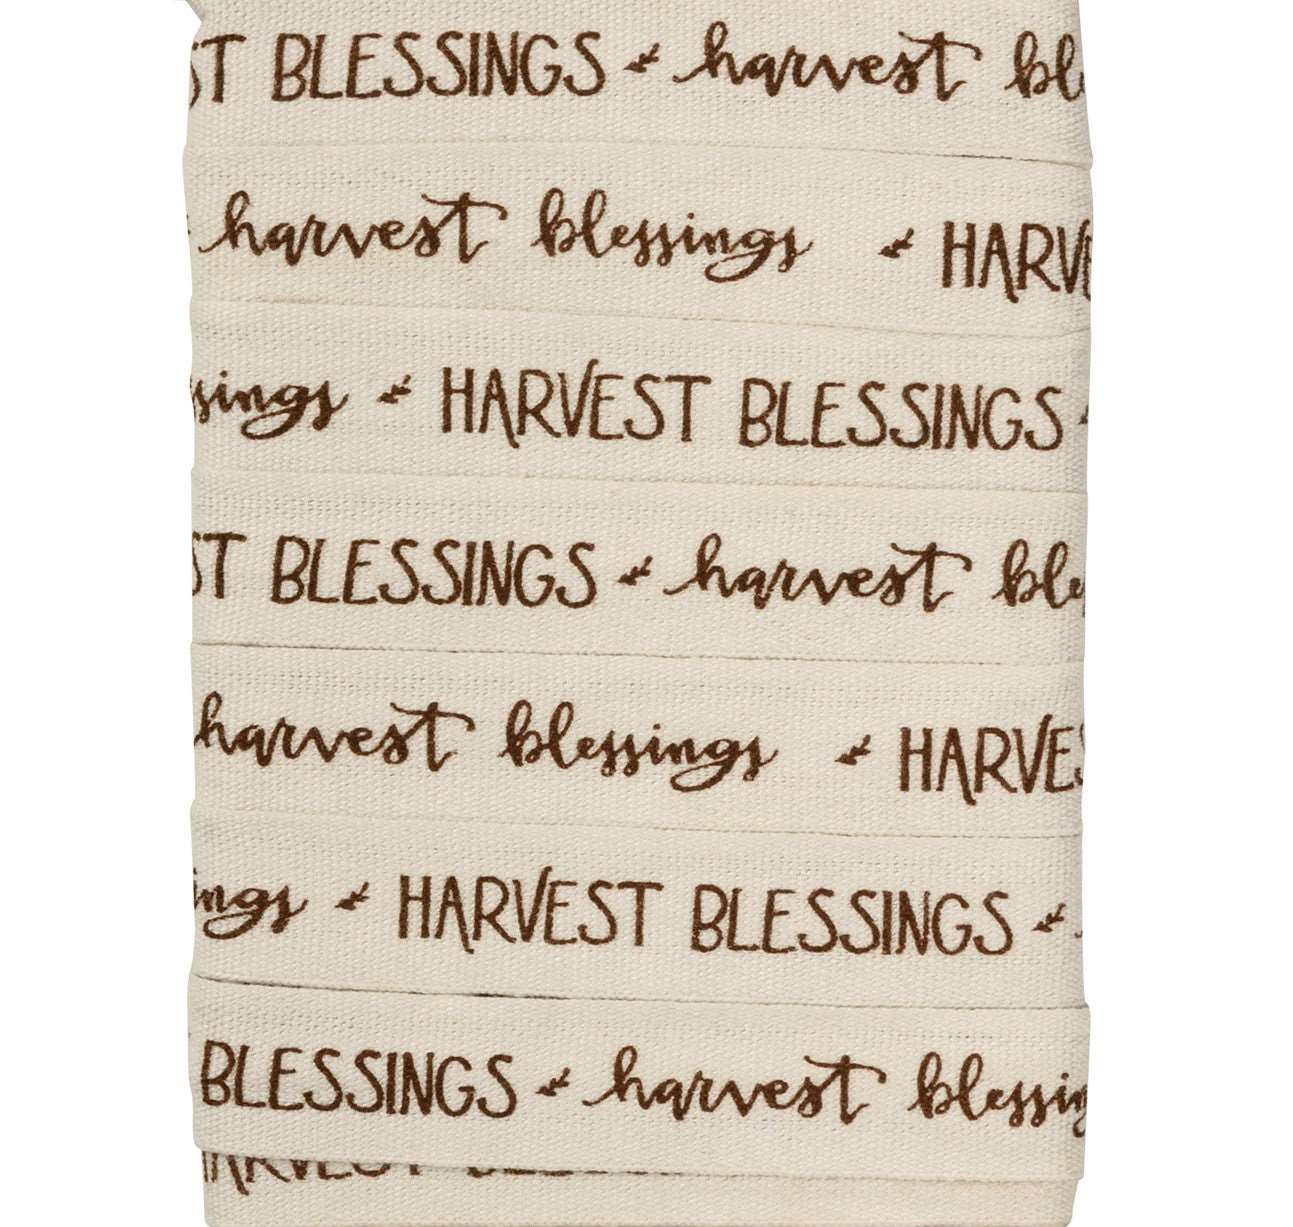 ST BLESSINGS harvest bl
harvest blessings HARVE
ssings HARVEST BLESSINGS
ST BLESSINGS harvest ble
harvest blessings HARVES
ings HARVEST BLESSINGS
BLESSINGS harvest blessin
HARVEST